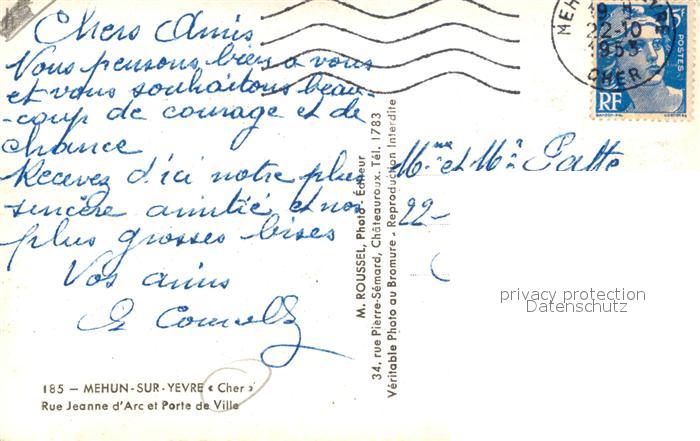 Chers Amis
Vous pensons bien a vous
et vous souhaitons beau-
-coup de courage et de
chance
Recevez d'ici notre plus
sincère amitié et nos
plus grosses bises
Vos amis
185 — MEHUN-SUR-YEVRE « Cher »
Rue Jeanne d'Arc et Porte de Ville
M. ROUSSEL, Photo - Editeur
34, rue Pierre-Sémard, Châteauroux. Tél. 1783
Véritable Photo au Bromure - Reproduction Interdite
22-10
1953
CHER
POSTES
RF
Mme et Mr
22-
privacy protection
Datenschutz